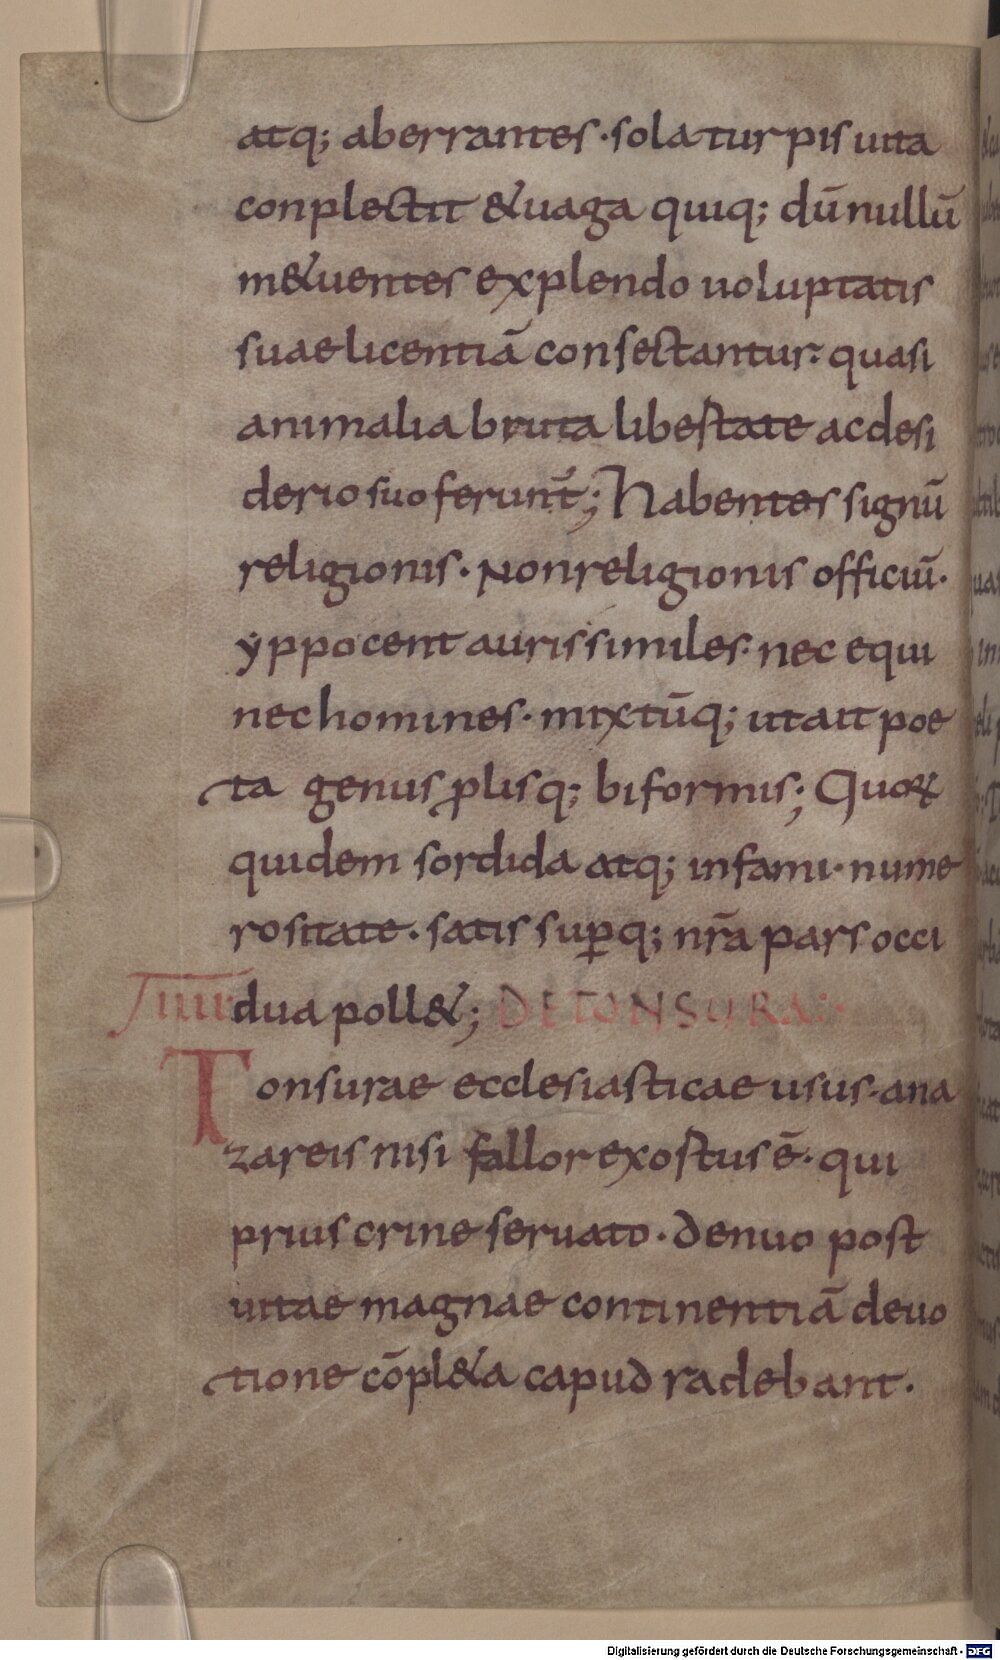 atq; aberrantes · sola turpis uita
conplectit &uaga quiq; dū nullū
m&uentes explendo uoluptatis
suae licentiā consectantur · quasi
animalia bruta libestate ac desi
derio suo ferunt̄; Habentes signū
religionis · Non religionis officiū ·
yppocent aurissimiles · nec equi
nec homines · mixtūq; ut ait poe
ta genus ꝓlisq; biformis; Quoꝝ
quidem sordida atq; infami · nume
rositate · satis suꝑq; nr̄a pars occi
IIII dua poll&; DE TONSURA
Tonsurae ecclesiasticae usus · ana
zareis nisi fallor exostus ē · qui
prius crine seruato · denuo post
uitae magnae continentiā deuo
tione cōpl&a capud radebant ·
Digitalisierung gefördert durch die Deutsche Forschungsgemeinschaft - DFG